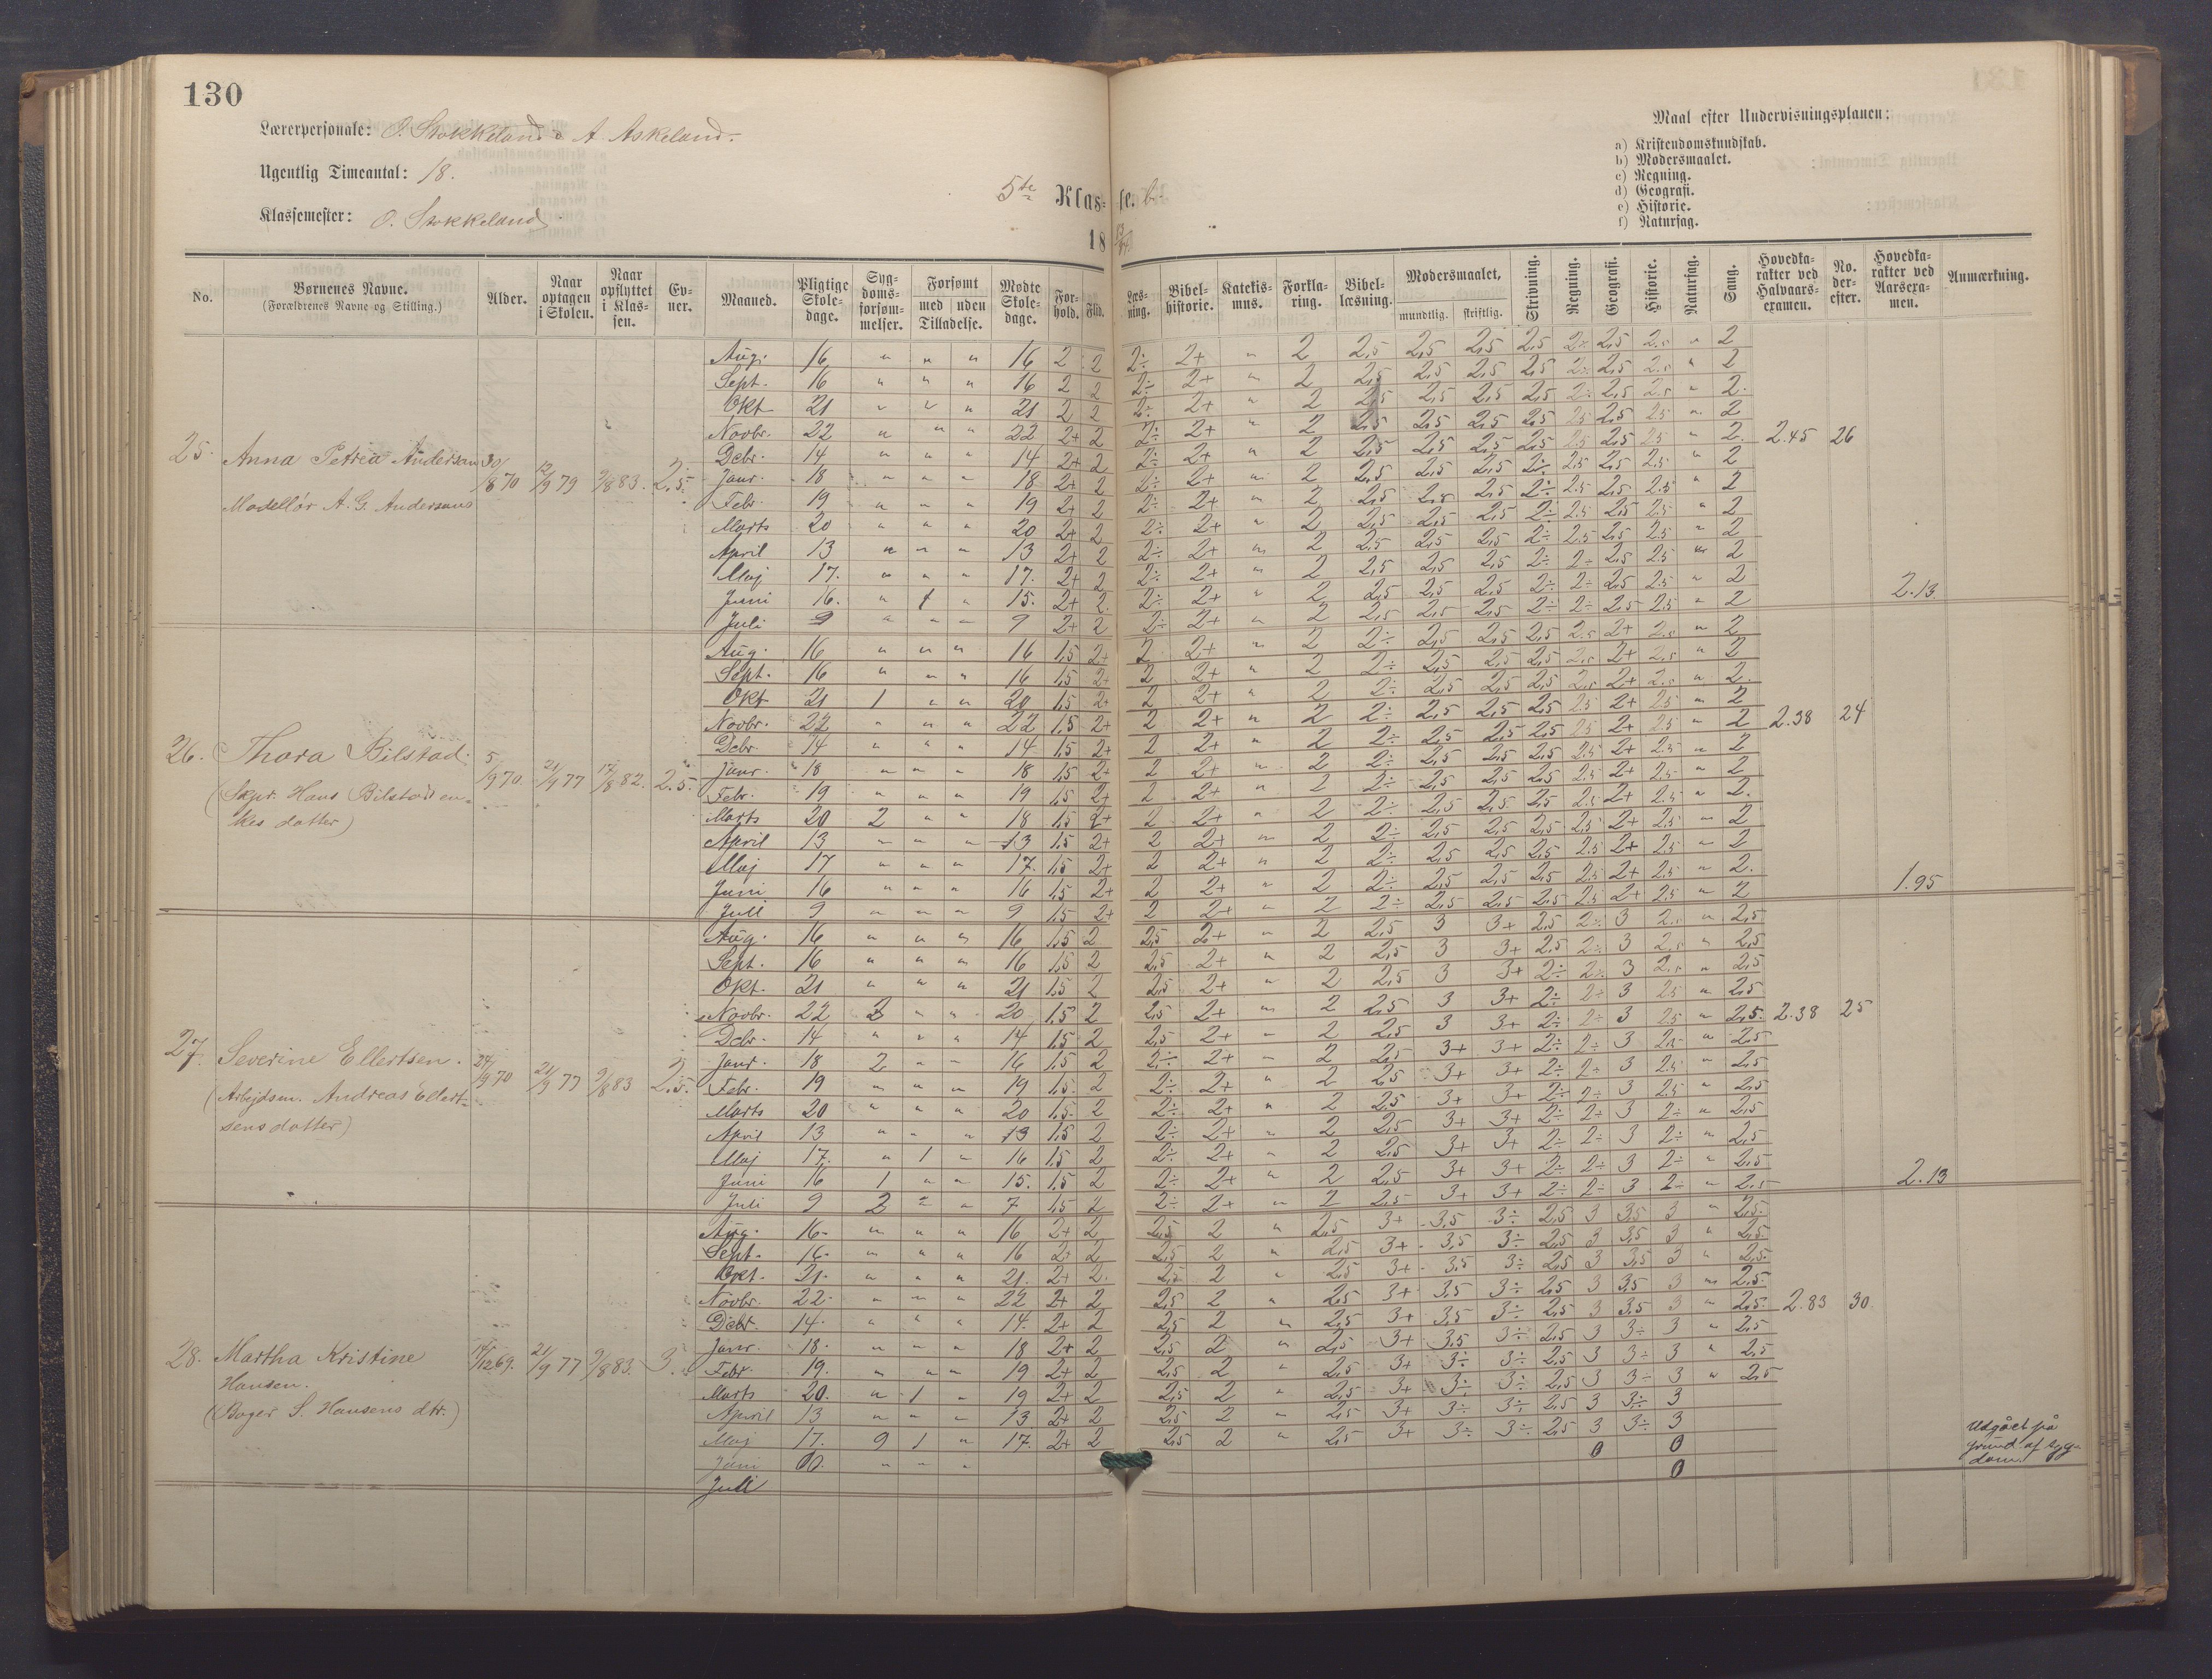 130
Lærerpersonale: O. Stokkeland o A. Askeland.
Ugentlig Timeantal: 18.
Klassemester: O. Stokkeland
5te Klasse. b.
18 83/84
Maal efter Undervisningsplanen:
a) Kristendomskundskab.
b) Modersmaalet.
c) Regning.
d) Geografi.
e) Historie.
f) Naturfag.
No. Børnenes Navne. (Forældrenes Navne og Stilling.) Alder. Naar optagen i Skolen. Naar opflyttet i Klassen. Evner. Maaned. Pligtige Skoledage. Sygdomsforsømmelser. Forsømt med uden Tilladelse. Mødte Skoledage. Forhold. Flid. Læsning. Bibelhistorie. Katekismus. Forklaring. Bibellæsning. Modersmaalet, mundtlig. skriftlig. Skrivning. Regning. Geografi. Historie. Naturfag. Sang. Hovedkarakter ved Halvaarsexamen. No. derefter. Hovedkarakter ved Aarsexamen. Anmærkning.
25. Anna Petrea Andersen 30/8 70 12/9 79 9/8 83. 2,5.
Modellør A. G. Andersens
Aug. 16 " " " 16 2 2 2÷ 2+ " 2 2,5 2,5 2,5 2,5 2÷ 2,5 2.5 " 2
Sept. 16 " " " 16 2 2 2÷ 2+ " 2 2,5 2,5 2,5 2,5 2÷ 2,5 2.5 " 2
Okt 21 " " " 21 2 2 2÷ 2+ " 2 2,5 2,5 2,5 2,5 2÷ 2,5 2.5 " 2.
Novbr. 22 " " " 22 2+ 2 2÷ 2+ " 2 2,5 2,5 2,5 2,5 2.5 2,5 2.5 " 2
Dcbr. 14 " " " 14 2+ 2 2÷ 2+ " 2 2,5 2,5 2,5 2,5 2.5 2,5 2.5 " 2. 2.45 26
Janr. 18 " " " 18 2+ 2 2÷ 2+ " 2 2,5 2,5 2,5 2÷ 2.5 2,5 2.5 " 2
Febr. 19 " " " 19 2+ 2 2÷ 2+ " 2 2,5 2,5 2,5 2÷ 2.5 2,5 2.5 " 2
Marts 20 " " " 20 2+ 2 2÷ 2+ " 2 2,5 2,5 2,5 2÷ 2.5 2,5 2.5 " 2
April 13 " " " 13 2+ 2 2÷ 2+ " 2 2,5 2,5 2,5 2÷ 2.5 2,5 2.5 " 2
Maj 17. " " " 17. 2+ 2 2÷ 2+ " 2 2,5 2,5 2,5 2÷ 2÷ 2,5 2.5 " 2
Juni 16. " 1 " 15. 2+ 2. 2÷ 2+ " 2 2,5 2,5 2,5 2÷ 2÷ 2,5 2.5 " 2 2.13.
Juli 9 " " " 9 2+ 2 2÷ 2+ " 2 2,5 2,5 2,5 2÷ 2÷ 2,5 2.5 " 2
26. Thora Bilstad. 5/9 70. 21/9 77 17/8 82. 2.5.
(Skpr. Hans Bilstad en=
kes datter)
Aug. 16 " " " 16 1,5 2+ 2 2+ " 2 2÷ 2,5 2,5 2,5 2.5 2+ 2.5 " 2
Sept. 16 " " " 16 1,5 2+ 2 2+ " 2 2÷ 2,5 2,5 2,5 2.5 2+ 2.5 " 2
Okt 21 1 " " 20 1,5 2+ 2 2+ " 2 2÷ 2,5 2,5 2,5 2.5 2+ 2.5 " 2.
Novbr. 22 " " " 22 1,5 2+ 2 2+ " 2 2÷ 2,5 2,5 2,5 2.5 2+ 2.5 " 2
Dcbr. 14 " " " 14 1,5 2+ 2 2+ " 2 2÷ 2,5 2,5 2,5 2.5 2+ 2.5 " 2 2.38 24
Janr. 18 " " " 18 1,5 2+ 2 2+ " 2 2÷ 2,5 2,5 2,5 2.5 2+ 2.5 " 2
Febr. 19 " " " 19 1,5 2+ 2 2+ " 2 2÷ 2,5 2,5 2,5 2.5 2+ 2.5 " 2
Marts 20 2 " " 18 1,5 2+ 2 2+ " 2 2÷ 2,5 2,5 2,5 2.5 2+ 2.5 " 2.
April 13 " " " 13 1,5 2+ 2 2+ " 2 2÷ 2,5 2,5 2,5 2.5 2+ 2.5 " 2
Maj 17 " " " 17. 1,5 2+ 2 2+ " 2 2÷ 2,5 2,5 2,5 2.5 2+ 2.5 " 2
Juni 16 " " " 16 1,5 2+ 2 2+ " 2 2÷ 2,5 2,5 2,5 2.5 2+ 2.5 " 2. 1.95
Juli 9 " " " 9 1,5 2+ 2 2+ " 2 2÷ 2,5 2,5 2,5 2.5 2+ 2.5 " 2
27. Severine Ellertsen. 24/9 70 21/9 77 9/8 83 2.5.
(Arbejdsm. Andreas Ellert-
sens datter)
Aug. 16 " " " 16 1,5 2 2,5 2+ " 2 2,5 3 3+ 2,5 2÷ 3 2.5 " 2,5
Sept. 16 " " " 16 1,5 2 2,5 2+ " 2 2,5 3 3+ 2,5 2÷ 3 2.5 " 2,5
Okt. 21 " " " 21 1,5 2 2,5 2+ " 2 2,5 3 3+ 2÷ 2÷ 3 2.5 " 2,5
Novbr. 22 2 " " 20 1,5 2 2,5 2+ " 2 2,5 3 3+ 2÷ 2÷ 3 2.5 " 2,5
Dcbr. 14 " " " 14 1,5 2 2,5 2+ " 2 2,5 3 3+ 2÷ 2÷ 3 2.5 " 2,5. 2.38 25
Janr. 18 2 " " 16 1,5 2 2÷ 2+ " 2 2,5 3+ 3+ 2÷ 2÷ 3 2.5 " 2,5
Febr. 19 " " " 19 1,5 2 2÷ 2+ " 2 2,5 3+ 3+ 2÷ 2÷ 3 2.5 " 2,5
Marts 20 " " " 20 1,5 2 2÷ 2+ " 2 2,5 3+ 3+ 2÷ 2÷ 3 2.5 " 2,5
April 13 " " " 13 1,5 2 2÷ 2+ " 2 2,5 3+ 3+ 2÷ 2÷ 3 2÷ " 2,5
Maj 17. " 1 " 16 1,5 2 2÷ 2+ " 2 2,5 3+ 3+ 2÷ 2÷ 3 2÷ " 2,5
Juni 16 1 " " 15. 1,5 2 2÷ 2+ " 2 2,5 3+ 3+ 2÷ 2÷ 3 2÷ " 2,5 2.13
Juli 9 2 " " 7 1,5 2 2÷ 2+ " 2 2,5 3+ 3+ 2÷ 2÷ 3 2÷ " 2,5
28. Martha Kristine 14/12 69. 21/9 77 9/8 83. 3.
Hansen.
(Bager S. Hansens dtr.)
Aug. 16 " " " 16 2+ 2 2,5 2 " 2,5 3+ 3,5 3÷ 2,5 3 3,5 3 " 2,5.
Sept. 16. " " " 16 2+ 2 2,5 2 " 2,5 3+ 3,5 3÷ 2,5 3 3,5 3 " 2,5.
Okt. 21. " " " 21. 2+ 2. 2,5 2 " 2,5 3+ 3,5 3÷ 2,5 3 3,5 3 " 2,5.
Novbr. 22. " " " 22 2+ 2 2,5 2 " 2,5 3+ 3,5 3÷ 2,5 3 3,5 3 " 2,5.
Dcbr. 14. " " " 14. 2+ 2 2,5 2 " 2,5 3+ 3,5 3÷ 2,5 3 3,5 3 " 2,5. 2.83 30
Janr. 18. " " " 18 2+ 2 2,5 2 " 2,5 3+ 3,5 3÷ 2,5 3 3÷ 3 " 2,5
Febr. 19. " " " 19 2+ 2 2,5 2 " 2,5 3+ 3÷ 3÷ 2,5 3 3÷ 3 " 2,5
Marts 20. " 1 " 19 2+ 2 2,5 2 " 2,5 3+ 3÷ 3÷ 2,5 3 3÷ 3 " 2,5
April 13 " " " 13 2+ 2 2,5 2 " 2,5 3+ 3÷ 3÷ 2,5 3 3÷ 3
Maj 17. 9 1 " 17. 2+ 2 2,5 2 " 2,5 3+ 3÷ 3÷ 2,5 3 3÷ 3
Juni " " " 0 0
Juli 0
Udgået på
grund af syg=
dom.